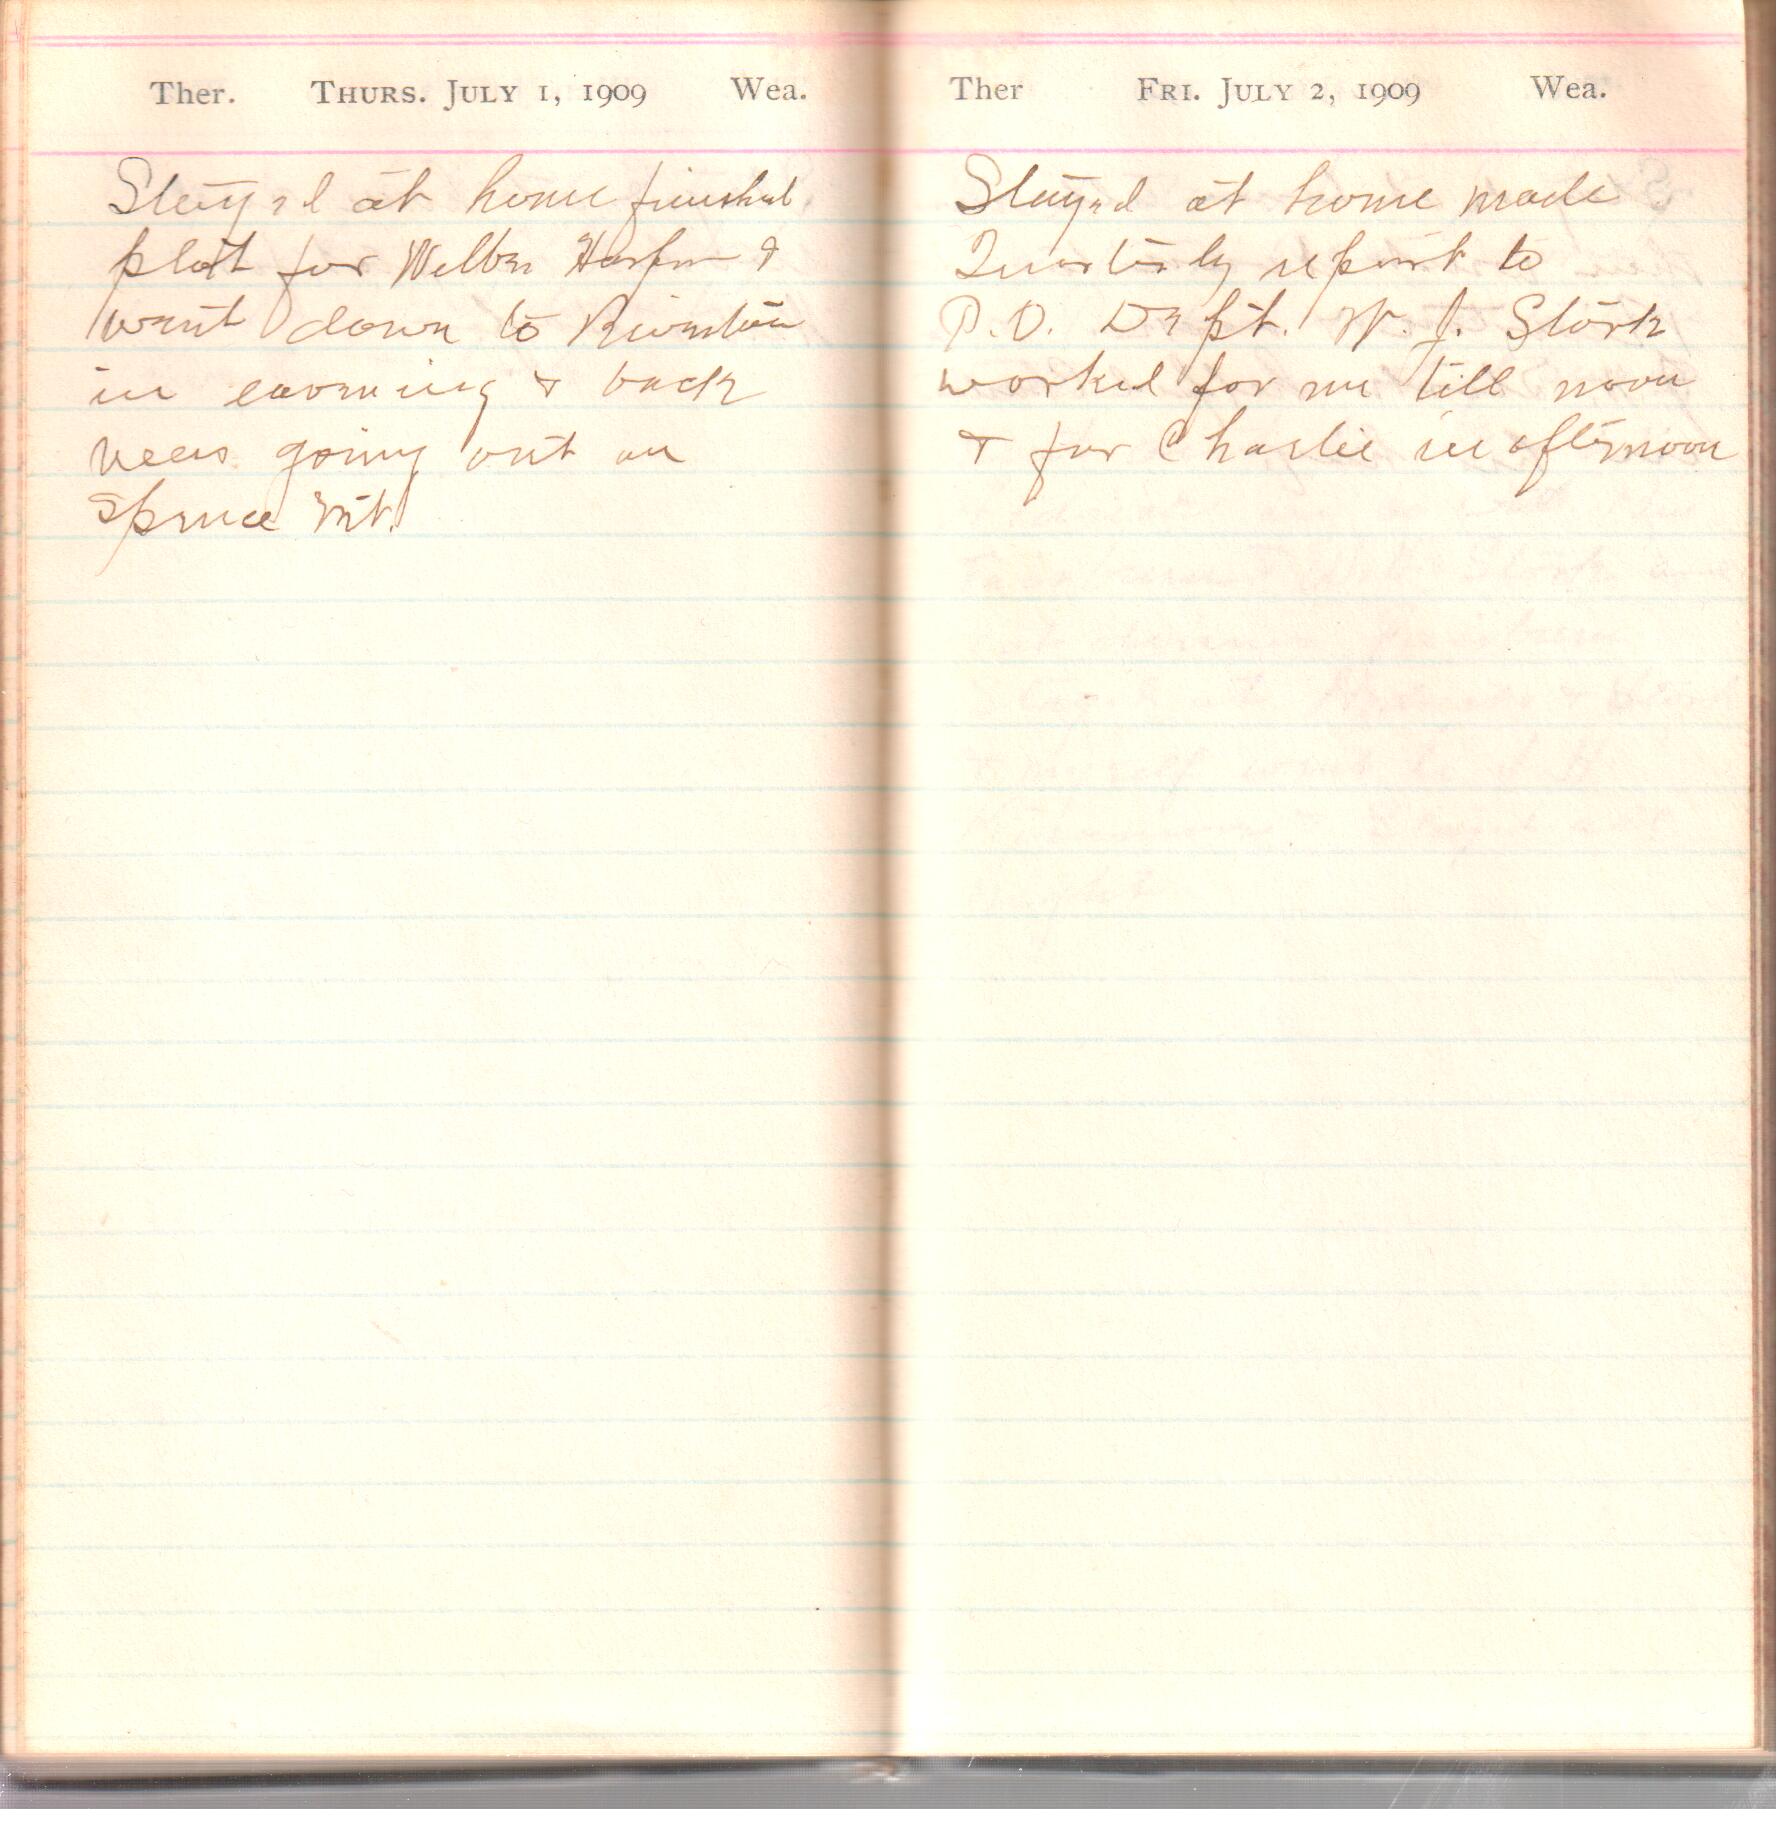 Ther. THURS. JULY 1, 1909 Wea.
Stayed at home finished
platt for Wilber Harper &
went down to Riverton
in evening & back
going out on
Spruce Mt.
Ther FRI. JULY 2, 1909 Wea.
Stayed at home made
Quarterly report to
P.O. Dept. W. J. Stork
worked for me till noon
& for Charlie in afternoon